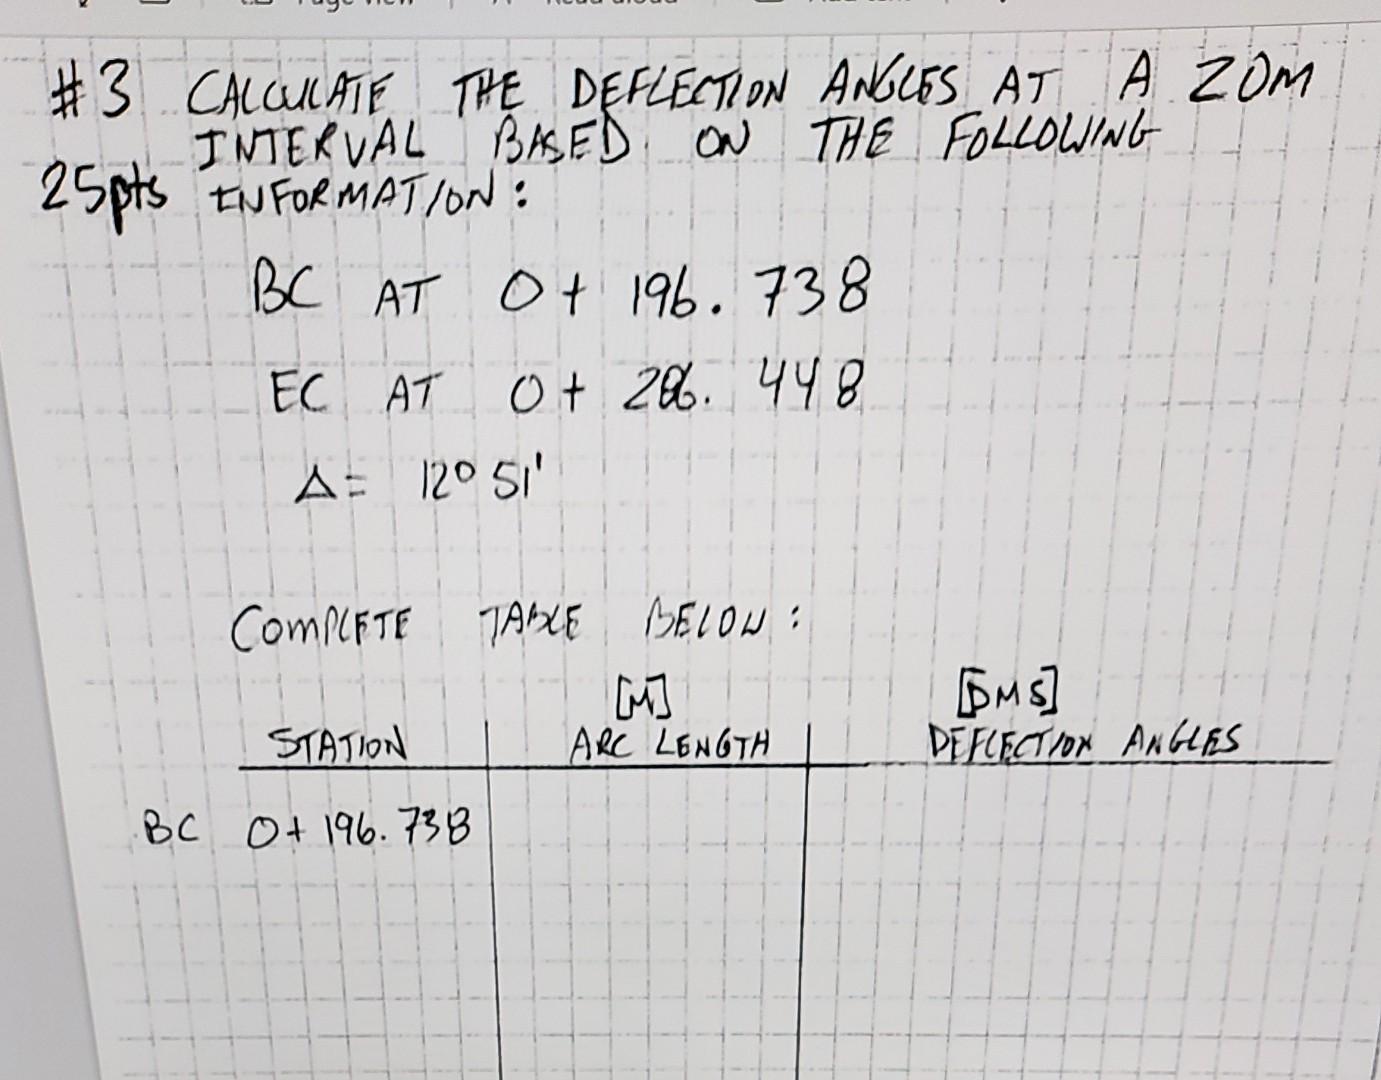 #3 CALCULATE THE DEFLECTION ANGLES AT A 20M
INTERVAL BASED ON THE FOLLOWING
25pts INFORMATION:
BC AT 0+ 196.738
EC AT 0+ 286.448
Δ= 12° 51'
COMPLETE TABLE BELOW:
[M] [DMS]
STATION ARC LENGTH DEFLECTION ANGLES
BC 0+ 196.738